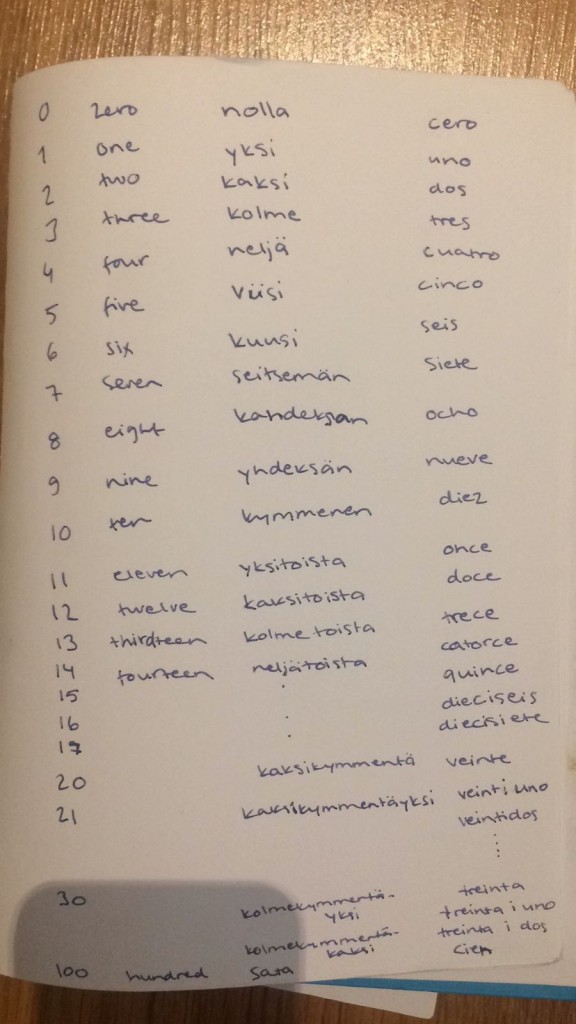 0 zero nolla cero
1 one yksi uno
2 two kaksi dos
3 three kolme tres
4 four neljä cuatro
5 five viisi cinco
6 six kuusi seis
7 seven seitsemän siete
8 eight kahdeksan ocho
9 nine yhdeksän nueve
10 ten kymmenen diez
11 eleven yksitoista once
12 twelve kaksitoista doce
13 thirdteen kolmetoista trece
14 fourteen neljätoista catorce
15 . quince
16 . dieciseis
17 . diecisiete
20 kaksikymmentä veinte
21 kaksikymmentäyksi veintiuno
veintidos
⋮
30 treinta
kolmekymmentä-
yksi treinta i uno
kolmekymmentä-
kaksi treinta i dos
100 hundred sata cien